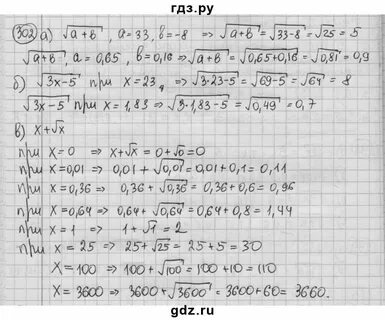 гдз.ру
302 а) √(a+b), a=33, b=-8 ⇒ √(a+b) = √(33-8) = √25 = 5
√(a+b), a=0,65, b=0,16 ⇒ √(a+b) = √(0,65+0,16) = √0,81 = 0,9
б) √(3x-5) при x=23, ⇒ √(3·23-5) = √(69-5) = √64 = 8
√(3x-5) при x=1,83 ⇒ √(3·1,83-5) = √0,49 = 0,7
в) x+√x
при x=0 ⇒ x+√x = 0+√0 = 0
при x=0,01 ⇒ 0,01+√0,01 = 0,01+0,1 = 0,11
при x=0,36 ⇒ 0,36+√0,36 = 0,36+0,6 = 0,96
при x=0,64 ⇒ 0,64+√0,64 = 0,64+0,8 = 1,44
при x=1 ⇒ 1+√1 = 2
при x=25 ⇒ 25+√25 = 25+5 = 30
x=100 ⇒ 100+√100 = 100+10 = 110
x=3600 ⇒ 3600+√3600 = 3600+60 = 3660.
gdz.ru